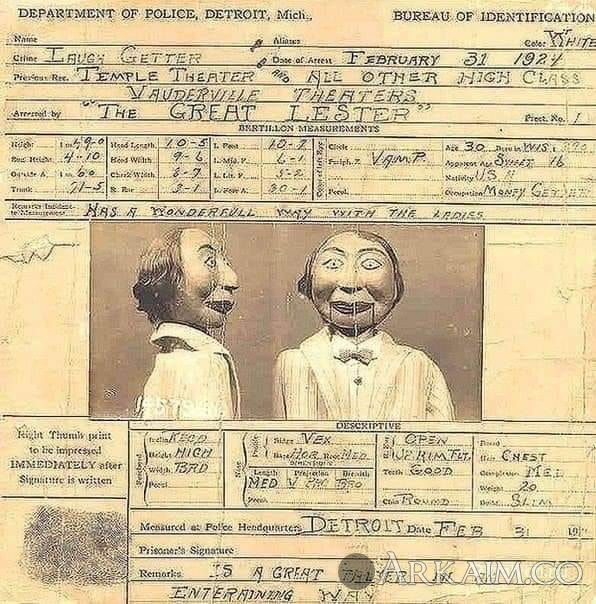 DEPARTMENT OF POLICE, DETROIT, Mich., BUREAU OF IDENTIFICATION
Name Aliases Color WHITE
Crime LAUGH GETTER Date of Arrest FEBRUARY 31 1924
Previous Rec. TEMPLE THEATER AND ALL OTHER HIGH CLASS
VAUDERVILLE THEATERS
Arrested by "THE GREAT LESTER" Prect. No. 1
BERTILLON MEASUREMENTS
Height Head Length 10-5 L. Foot 10-7 Circle Age 30 Born in WIS
Eng. Height 4-10 Head Width 9-6 L. Mid. F. 6-1 Periph. Z VAMP. Apparent Age SWEET 16
Outside A. Cheek Width L. Lit. F. 5-2 Nativity U S A
Trunk 71-5 R. Ear 3-1 L. Fore A. 30-1 Pecul. Occupation MONEY GETTER
Remarks Incident to Measurement HAS A WONDERFULL WAY WITH THE LADIES
DESCRIPTIVE
Right Thumb print
to be impressed
IMMEDIATELY after
Signature is written
Height HIGH
Width BRD
Pecul.
Ridge VEX
Base HOR Root MED
DIMENSIONS
Length Projection Breadth
MED BRO
Pecul.
OPEN
Teeth GOOD
Chin ROUND
Beard
Hair CHEST
Complexion MED
Weight 20
Build SLIM
Measured at Police Headquarters DETROIT Date FEB 31
Prisoner's Signature
Remarks IS A GREAT IN
ENTERAINING WAY
ARKAIM.CO